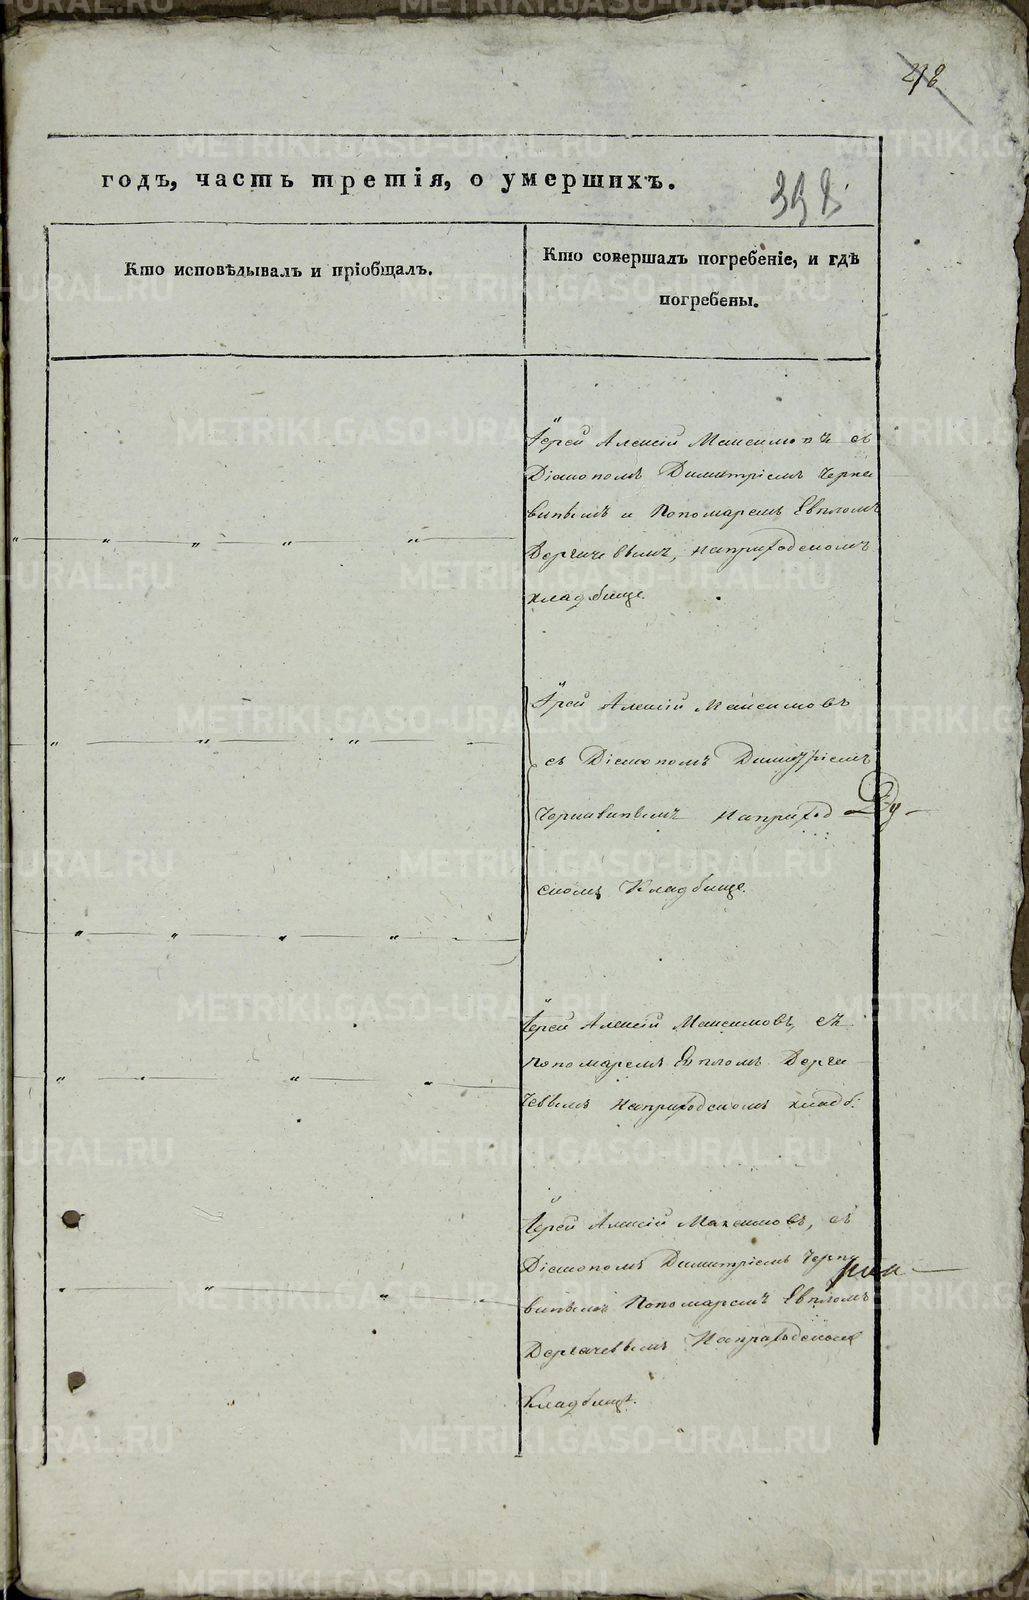 218
годъ, часть третія, о умершихъ.
398
Кто исповѣдывалъ и пріобщалъ.
Кто совершалъ погребеніе, и гдѣ
погребены.
Іерей Алексій Максимовъ съ
Діакономъ Димитріемъ Черна
винымъ и Пономаремъ Евпломъ
Дергачевымъ, наприходскомъ
кладбище.
Ірей Алексій Максимовъ
съ Діакономъ Димитріемъ
Чернавинымъ наприход
скомъ Кладбище.
Іерей Алексій Максимовъ, съ
пономаремъ Евпломъ Дерга
чевымъ наприходскомъ кладб:
Іерей Алексій Максимовъ, съ
Діакономъ Димитріемъ Черна
винымъ Пономаремъ Евпломъ
Дергачевымъ Наприходскомъ
Кладбище.
METRIKI.GASO-URAL.RU